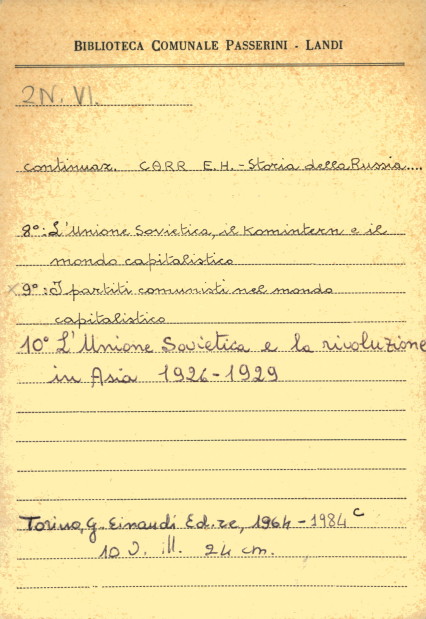 BIBLIOTECA COMUNALE PASSERINI - LANDI
2N. VI.
continuaz. CARR E.H. - Storia della Russia....
8°: L'Unione Sovietica, il Komintern e il
mondo capitalistico
9°: I partiti comunisti nel mondo
capitalistico
10° L'Unione Sovietica e la rivoluzione
in Asia 1926-1929
Torino, G. Einaudi Ed.re, 1964-1984 c
10 v. ill. 24 cm.